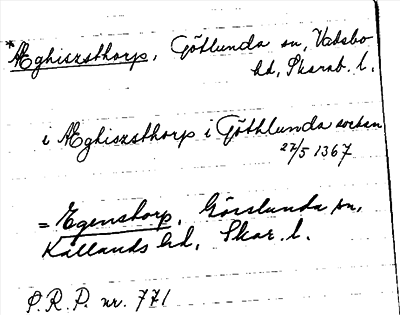 *Æghiszsthorp, Götlunda sn, Vadsbo
hd, Skarab. l.
i Æghiszsthorp i Göthlunda sochen
22/5 1367
= Egenstorp, Görslunda sn,
Kållands hd, Skar. l.
P. R. P. nr. 771